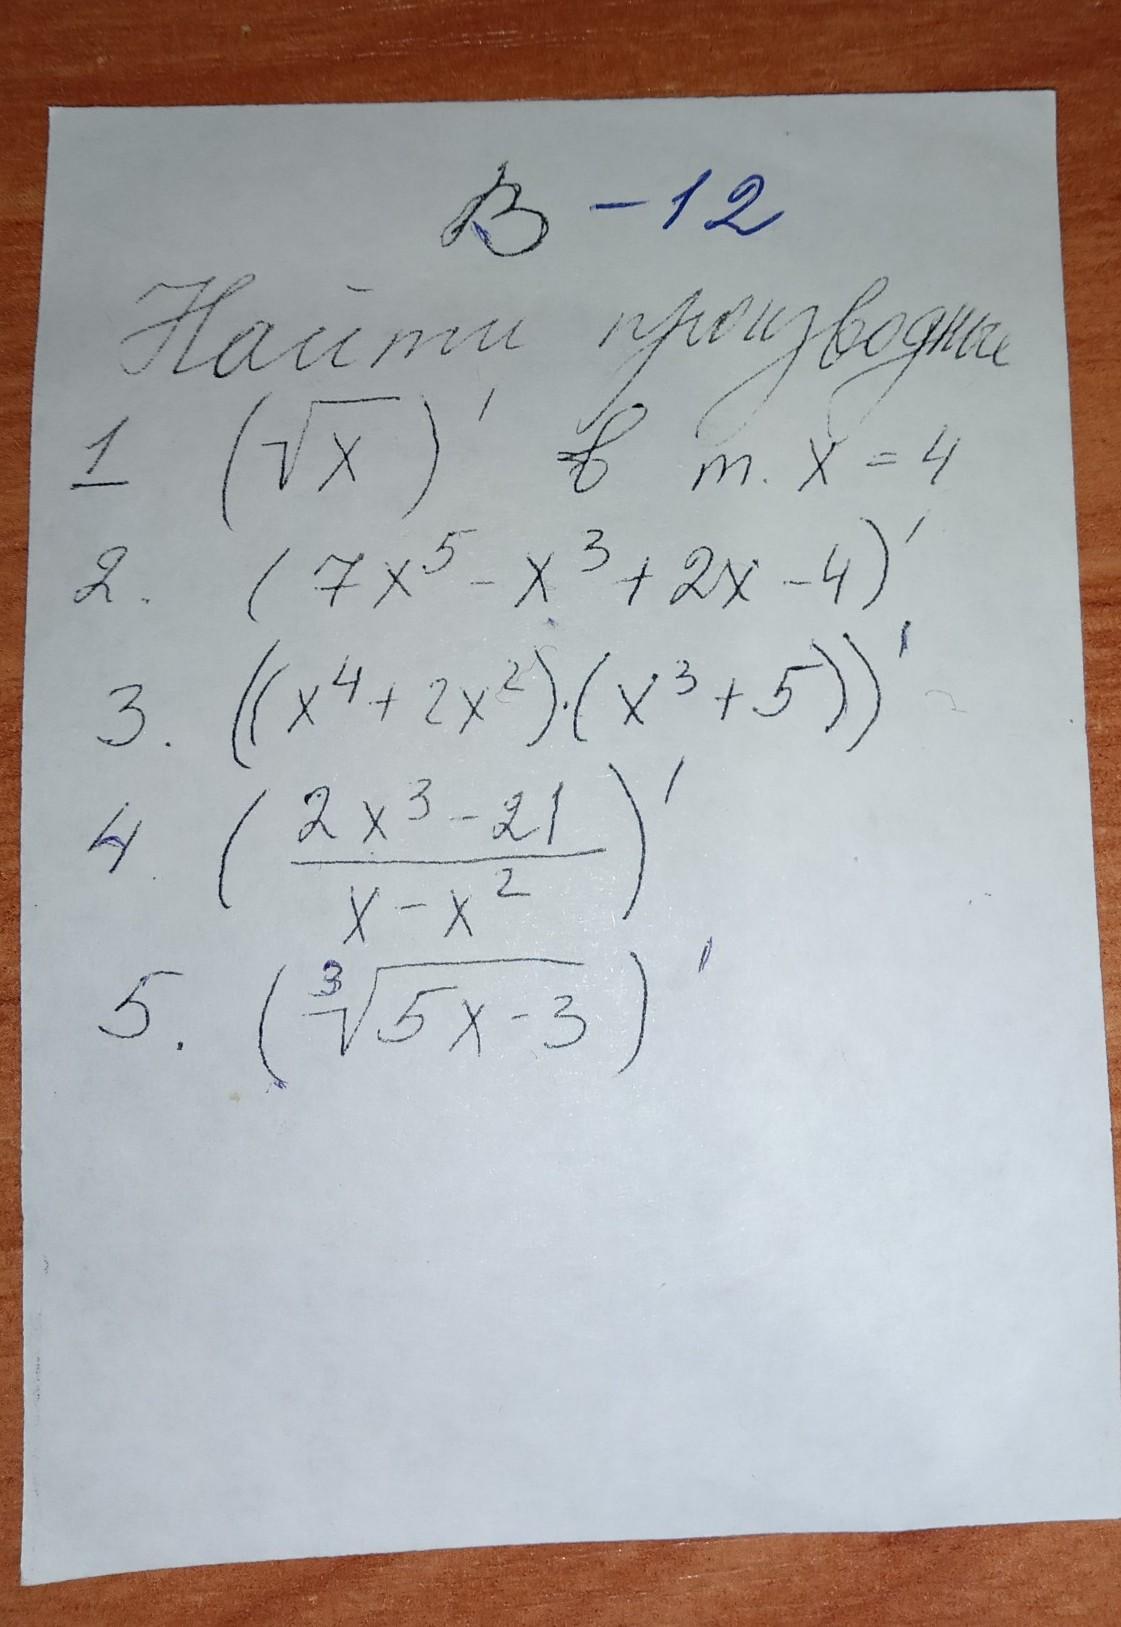 В - 12
Найти производные
1 (√x)' в т. x = 4
2. (7x⁵ - x³ + 2x - 4)'
3. ((x⁴ + 2x²)·(x³ + 5))'
4. (2x³ - 21 / x - x²)'
5. (∛5x - 3)'